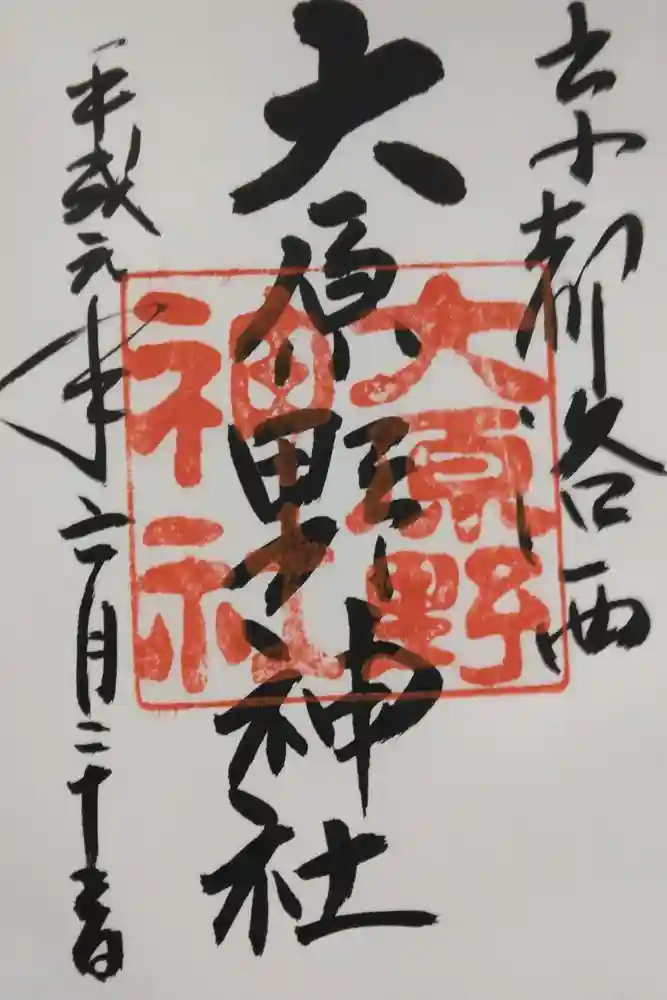 京都洛西
大原野神社
平成元年六月二十五日
大原野
神社